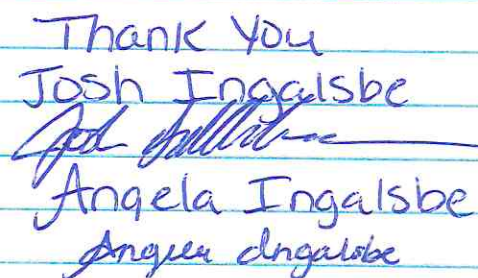 Thank You
Josh Ingalsbe
Josh
Angela Ingalsbe
Angela Ingalsbe